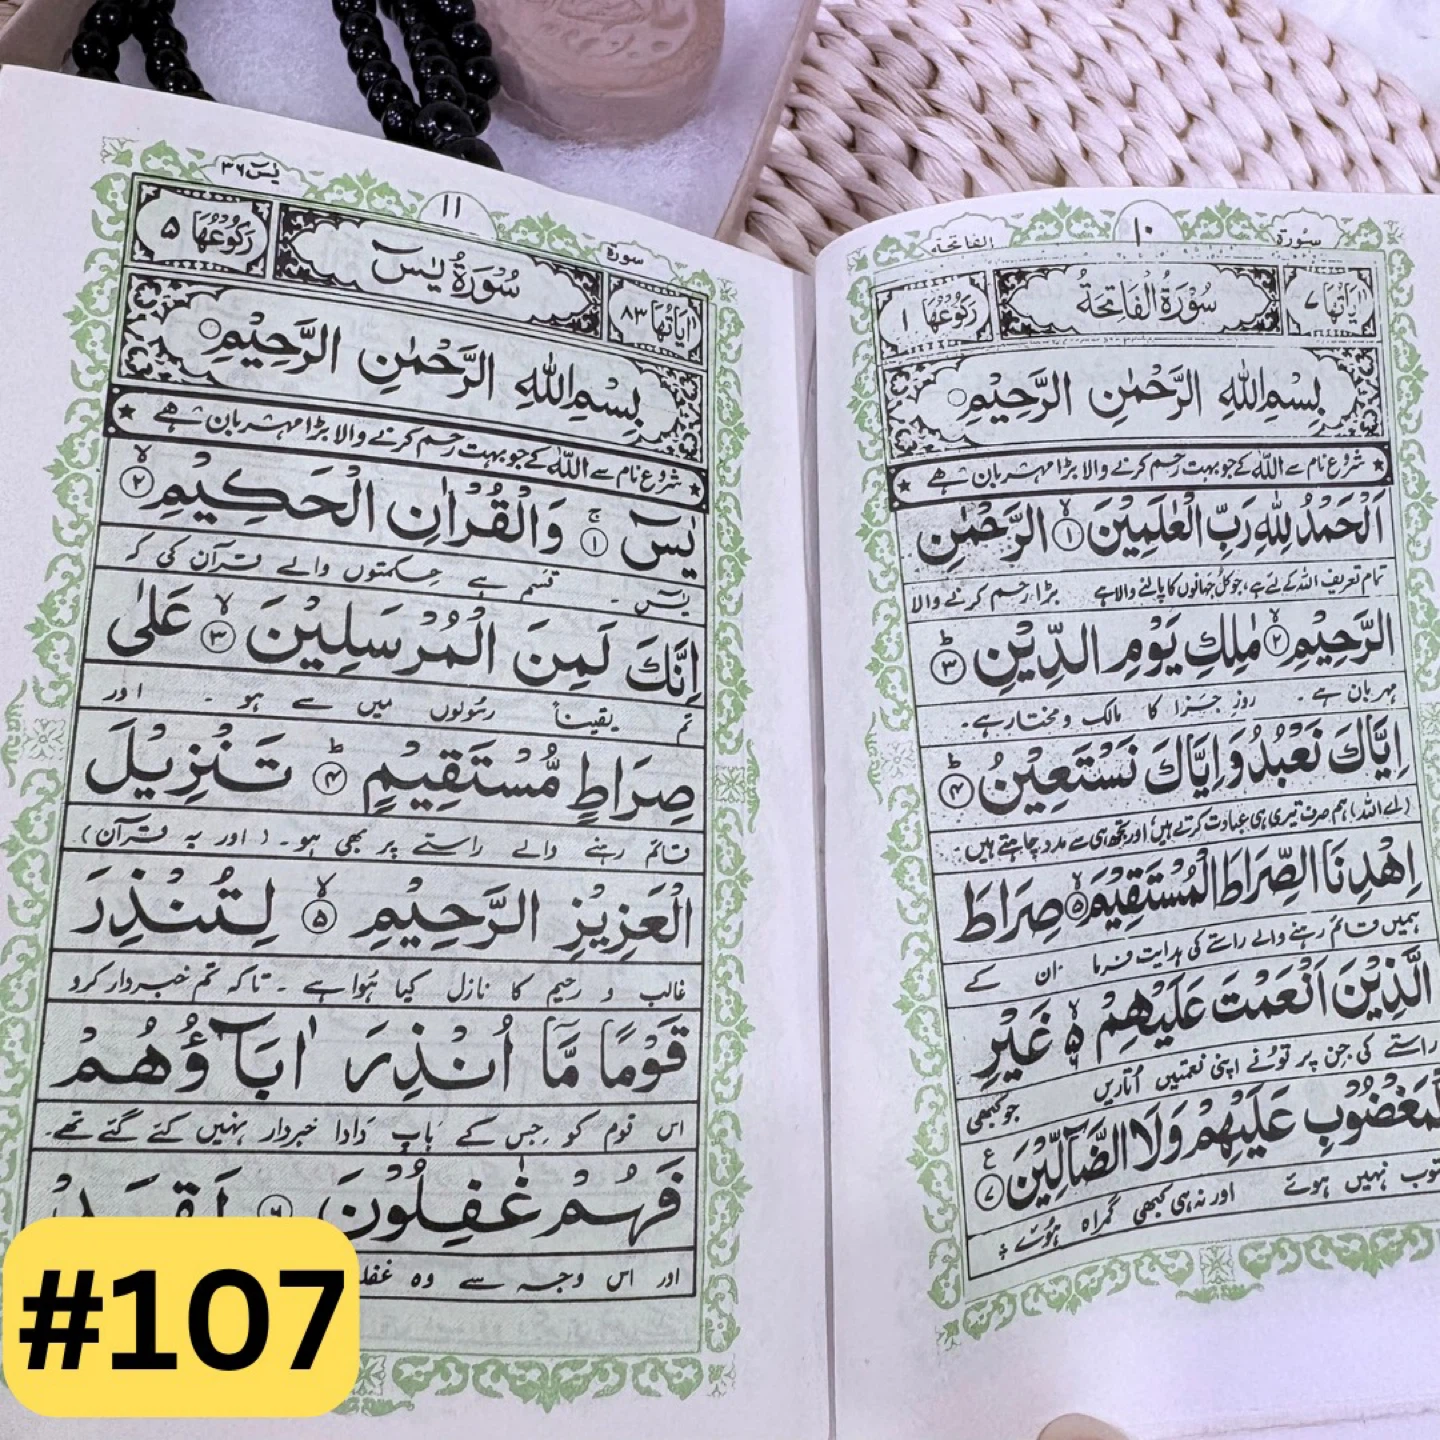 سورة
١٠
الفاتحة
اٰيَاتُهَا ٧
سُوْرَةُ الْفَاتِحَةُ
رُكُوْعُهَا ١
بِسْمِ اللهِ الرَّحْمٰنِ الرَّحِيْمِ
شروع نام سے اللہ کے جو بہت رحم کرنے والا بڑا مہربان ہے
اَلْحَمْدُ لِلّٰهِ رَبِّ الْعٰلَمِيْنَ ۙ﴿١﴾ الرَّحْمٰنِ
تمام تعریف اللہ کے لئے ہے، جو کل جہانوں کا پالنے والا ہے بڑا رحم کرنے والا
الرَّحِيْمِ ۙ﴿٢﴾ مٰلِكِ يَوْمِ الدِّيْنِ ؕ﴿٣﴾
مہربان ہے ۔ روزِ جزا کا مالک و مختار ہے۔
اِيَّاكَ نَعْبُدُ وَاِيَّاكَ نَسْتَعِيْنُ ؕ﴿٤﴾
(اے اللہ) ہم صرف تیری ہی عبادت کرتے ہیں اور تجھ ہی سے مدد چاہتے ہیں۔
اِهْدِنَا الصِّرَاطَ الْمُسْتَقِيْمَ ۙ﴿٥﴾ صِرَاطَ
ہمیں قائم رہنے والے راستے کی ہدایت فرما ان کے
الَّذِيْنَ اَنْعَمْتَ عَلَيْهِمْ ۙ۬ۙ غَيْرِ
راستے کی جن پر تونے اپنی نعمتیں اُتاریں جو کبھی
الْمَغْضُوْبِ عَلَيْهِمْ وَلَا الضَّآلِّيْنَ ﴿٧﴾ ع
نہیں ہوئے اور نہ ہی کبھی گمراہ ہوئے
سورة
١١
يٰسٓ ٣٦
اٰيَاتُهَا ٨٣
سُوْرَةُ يٰسٓ
رُكُوْعُهَا ٥
بِسْمِ اللهِ الرَّحْمٰنِ الرَّحِيْمِ
شروع نام سے اللہ کے جو بہت رحم کرنے والا بڑا مہربان ہے
يٰسٓ ۚ﴿١﴾ وَالْقُرْاٰنِ الْحَكِيْمِ ۙ﴿٢﴾
یٰسٓ ۔ قسم ہے حکمتوں والے قرآن کی کہ
اِنَّكَ لَمِنَ الْمُرْسَلِيْنَ ۙ﴿٣﴾ عَلٰى
تم یقیناً رسولوں میں سے ہو ۔ اور
صِرَاطٍ مُّسْتَقِيْمٍ ؕ﴿٤﴾ تَنْزِيْلَ
قائم رہنے والے راستے پر بھی ہو۔ (اور یہ قرآن)
الْعَزِيْزِ الرَّحِيْمِ ۙ﴿٥﴾ لِتُنْذِرَ
غالب و رحیم کا نازل کیا ہُوا ہے ۔ تاکہ تم خبردار کرو
قَوْمًا مَّآ اُنْذِرَ اٰبَآؤُهُمْ
اس قوم کو جس کے باپ دادا خبردار نہیں کئے گئے تھے۔
فَهُمْ غٰفِلُوْنَ ﴿٦﴾ لَقَدْ
اور اس وجہ سے وہ
#107